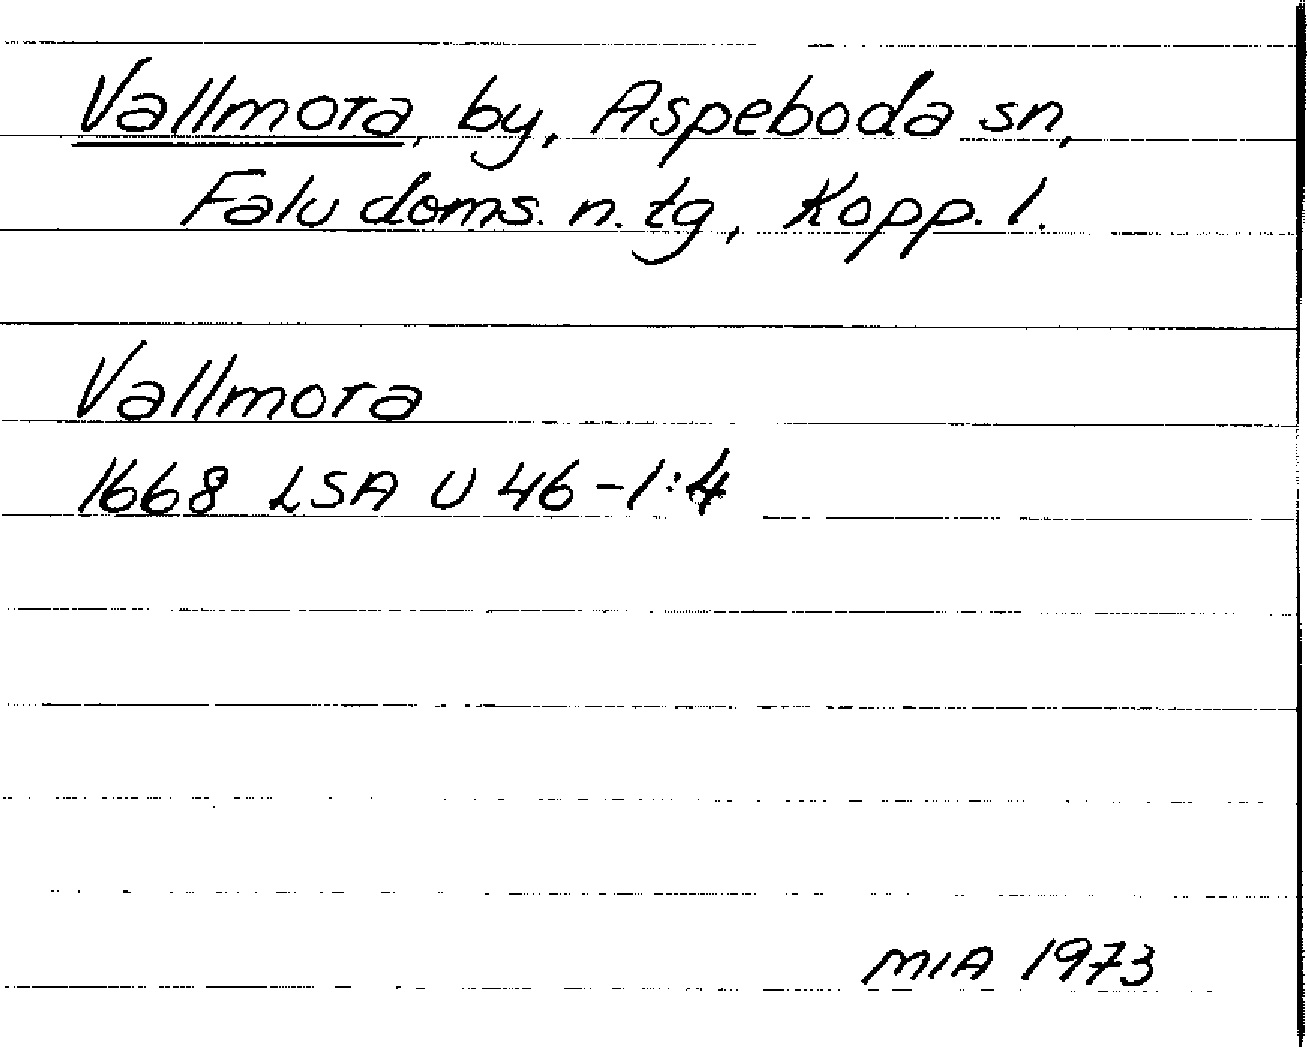 Vallmora, by, Aspeboda sn,
Falu doms. n. tg, Kopp. l.
Vallmora
1668 LSA U 46-1:4
MIA 1973